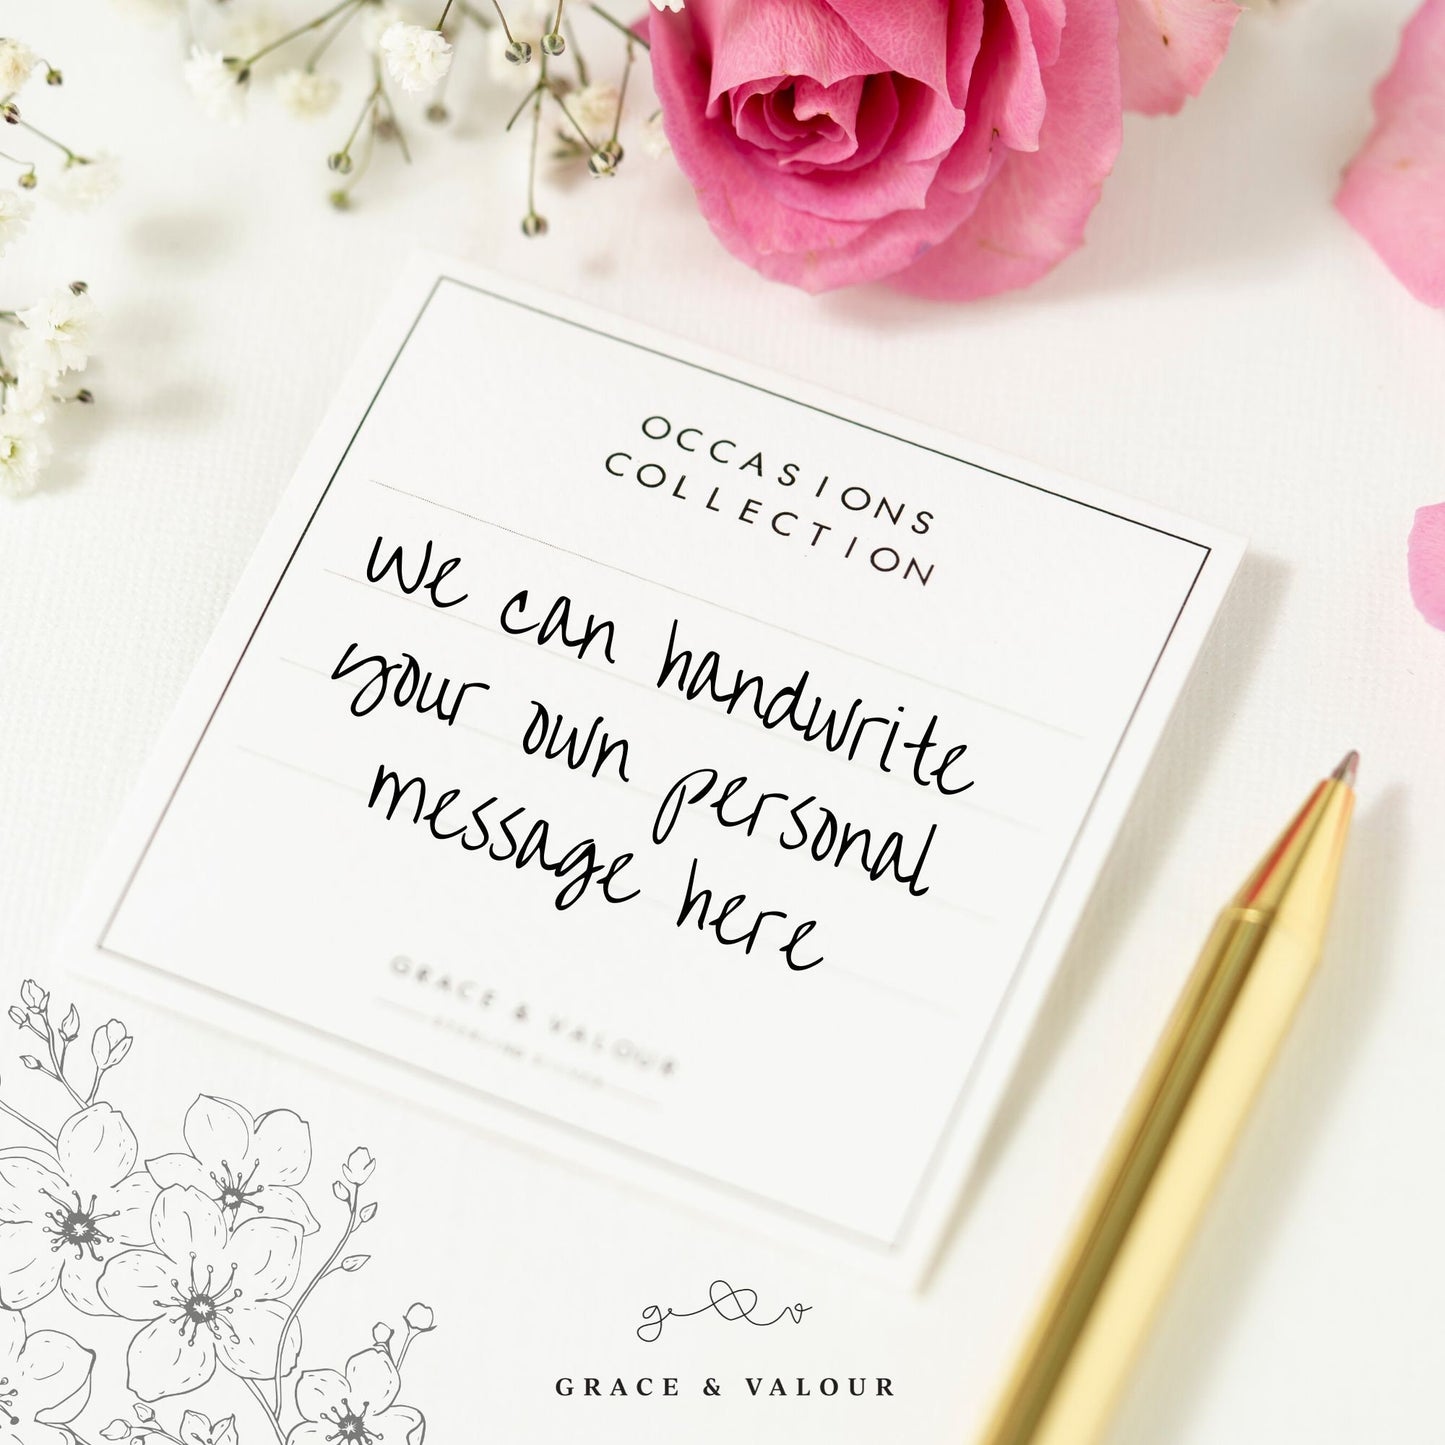 OCCASIONS
COLLECTION
We can handwrite
your own personal
message here
GRACE & VALOUR
ge v
GRACE & VALOUR